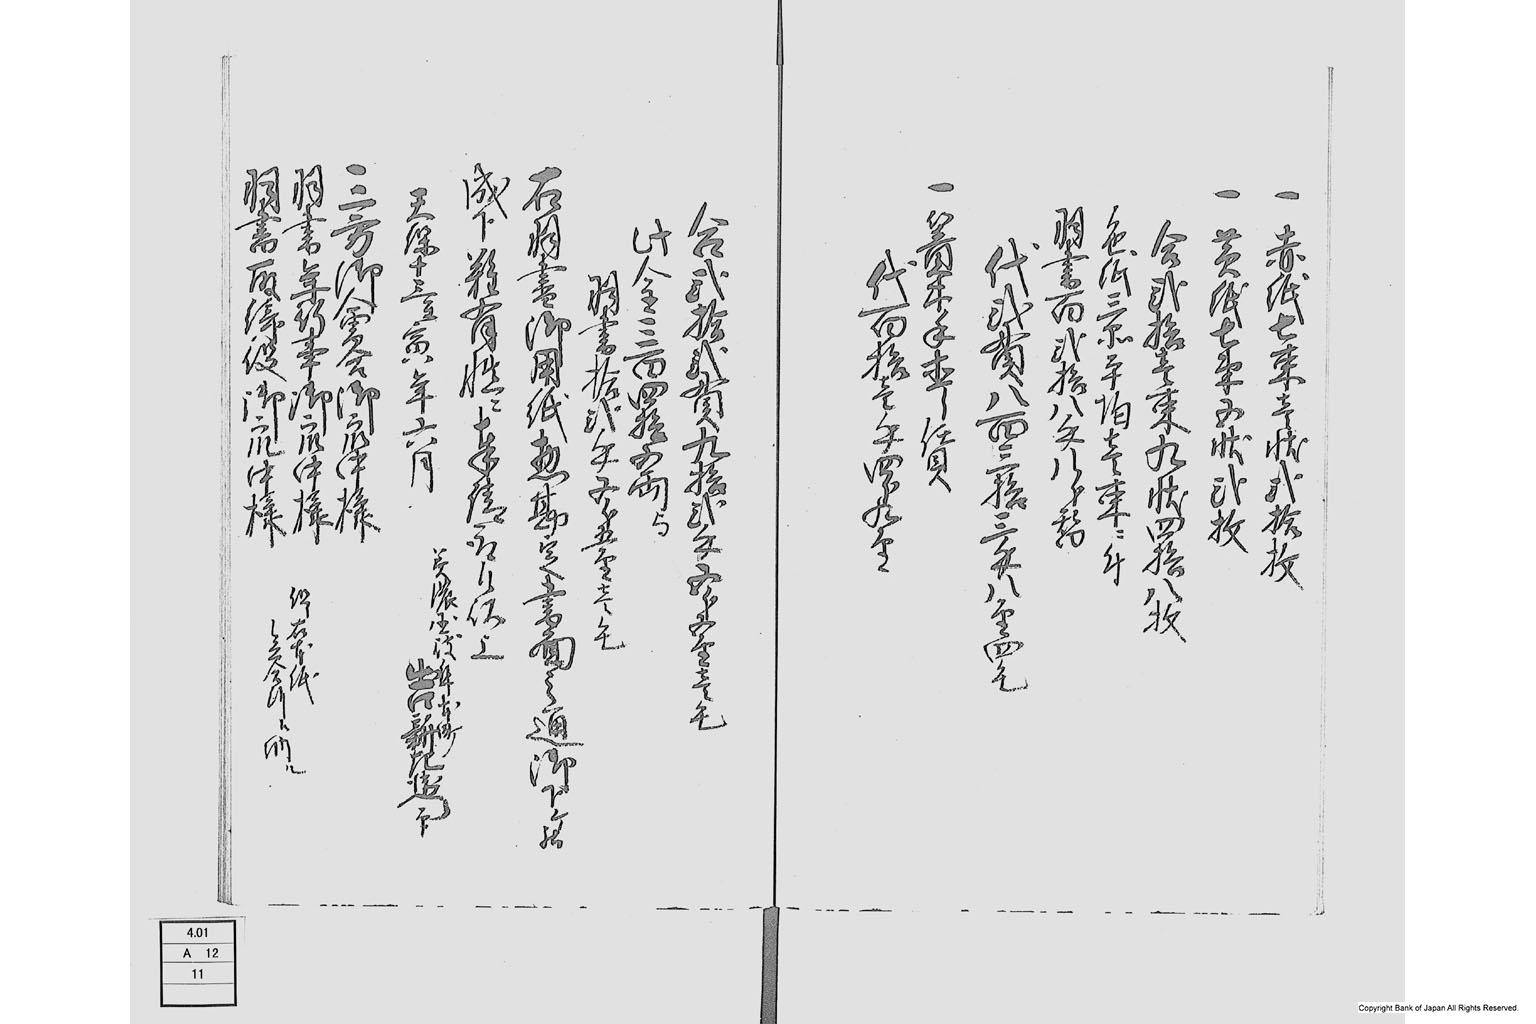 一赤紙七束壱状弐拾枚
一黄紙七束五状弐枚
合弐拾壱束九状四拾八枚
色紙三品平均壱束ニ付
羽書百弐拾八匁八分替
代弐貫八百三拾三匁八厘四毛
一箱本手間賃
代百拾壱匁四分九厘
合弐拾弐貫九拾弐匁五分五厘壱毛
此金三百四拾五両与
羽書拾弐匁五分五厘壱毛
右羽書御用紙惣勘定書面之通御下ケ被
成下難有慥ニ奉請取候以上
天保十三壬寅年六月
美濃国
新記造
三方御会合御衆中様
羽書年行事御衆中様
羽書取締役御衆中様
4.01
A 12
11
Copyright Bank of Japan All Rights Reserved.